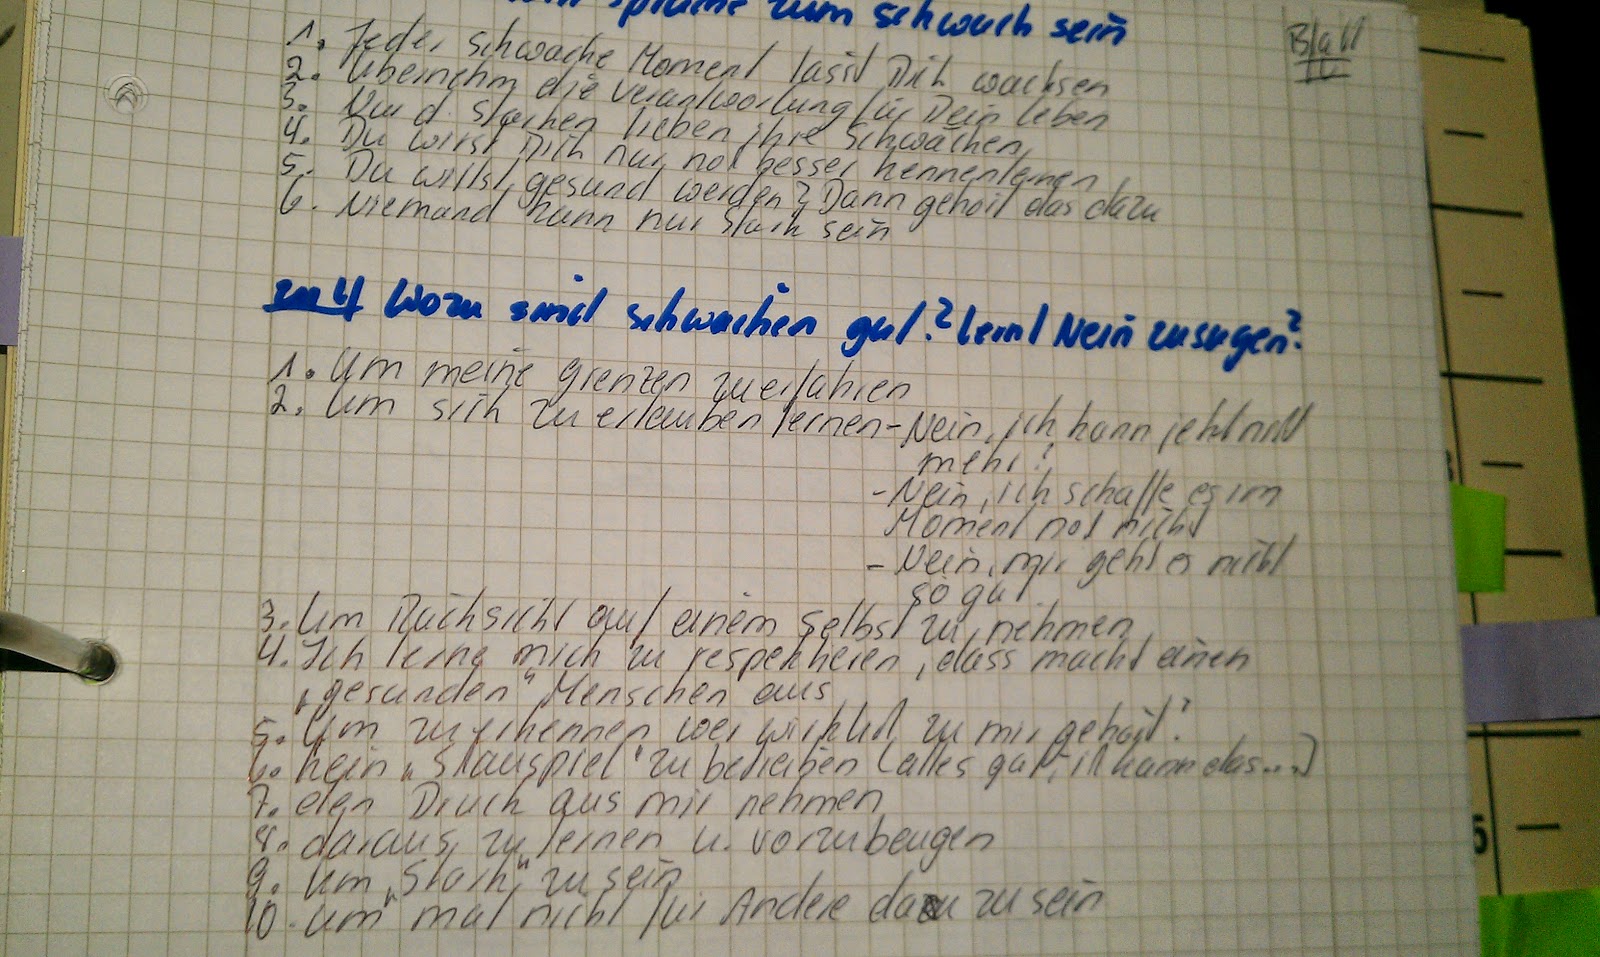 sprüche zum schwach sein
Blatt
10
1. Jeder schwache Moment lässt Dich wachsen
2. Übernehm die verantwortung für Dein leben
3. Nur d. starken lieben ihre Schwächen
4. Du wirst Dich nur noch besser kennenlernen
5. Du willst gesund werden? Dann gehört das dazu
6. Niemand kann nur stark sein
zu 4 Wozu sind schwächen gut? lernt Nein zusagen?
1. Um meine grenzen zu erfahren
2. Um sich zu erlauben lernen - Nein, ich kann jetzt nicht
mehr?
- Nein, ich schaffe es im
Moment noch nicht
- Nein, mir geht es nicht
so gut
3. Um Rücksicht auf einem selbst zu nehmen
4. Ich lerne mich zu respektieren, dass macht einen
"gesunden" Menschen aus
5. Um zu erkennen wer wirklich zu mir gehört?
6. kein "Schauspiel" zu betreiben (alles gut, ich kann das...)
7. den Druck aus mir nehmen
8. daraus zu lernen u. vorzubeugen
9. Um "Stark" zu sein
10. Um mal nicht für Andere da zu sein
5